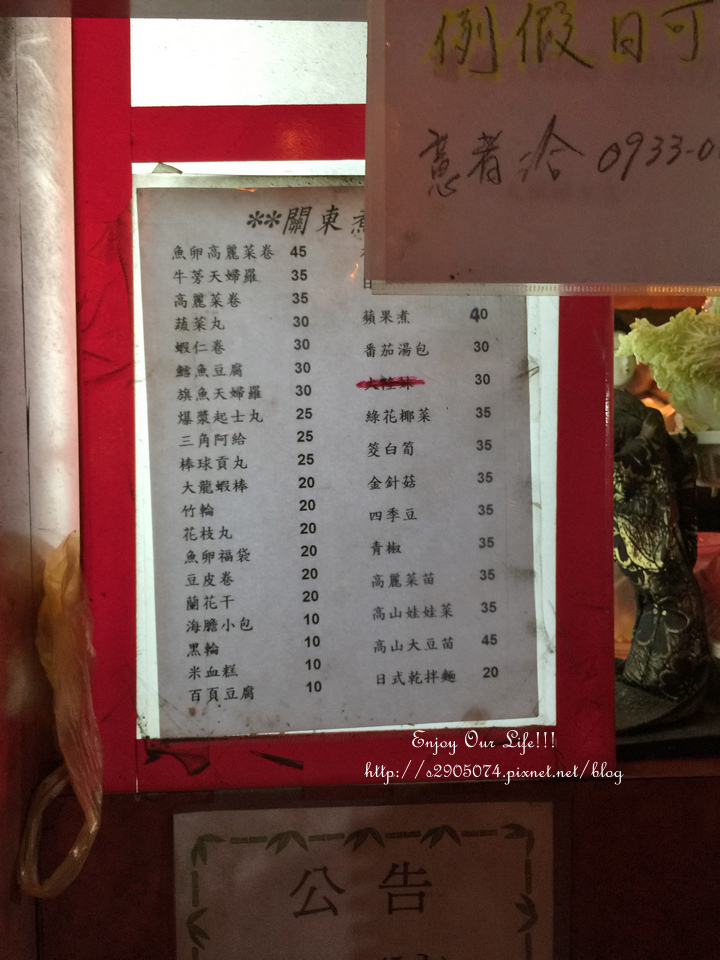 例假日可
意者洽 0933-0
**關東煮
魚卵高麗菜卷 45
牛蒡天婦羅 35
高麗菜卷 35
蔬菜丸 30
蝦仁卷 30
鱈魚豆腐 30
旗魚天婦羅 30
爆漿起士丸 25
三角阿給 25
棒球貢丸 25
大龍蝦棒 20
竹輪 20
花枝丸 20
魚卵福袋 20
豆皮卷 20
蘭花干 20
海膽小包 10
黑輪 10
米血糕 10
百頁豆腐 10
蘋果煮 40
番茄湯包 30
30
綠花椰菜 35
筊白筍 35
金針菇 35
四季豆 35
青椒 35
高麗菜苗 35
高山娃娃菜 35
高山大豆苗 45
日式乾拌麵 20
Enjoy Our Life!!!
http://s2905074.pixnet.net/blog
公告